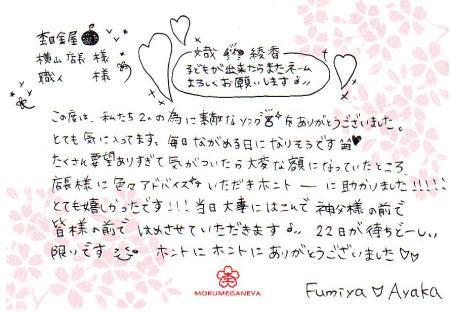 杢目金屋
横山店長様
職人 様
熾 綾香
子どもが出来たらまたネーム
よろしくお願いします♪♪
この度は、私たち2人の為に素敵なリングをありがとうございました。
とても気に入ってます、毎日ながめる日になりそうです
たくさん要望ありすぎて気がついたら大変な額になっていたところ
店長様に色々アドバイスいただきホントーに助かりました!!!!!
とても嬉しかったです!!!当日大事にはこんで神父様の前で
皆様の前ではめさせていただきます♪♪ 22日が待ちどーしい
限りです ホントにホントにありがとうございました♡♡
MOKUMEGANEYA
Fumiya♡Ayaka